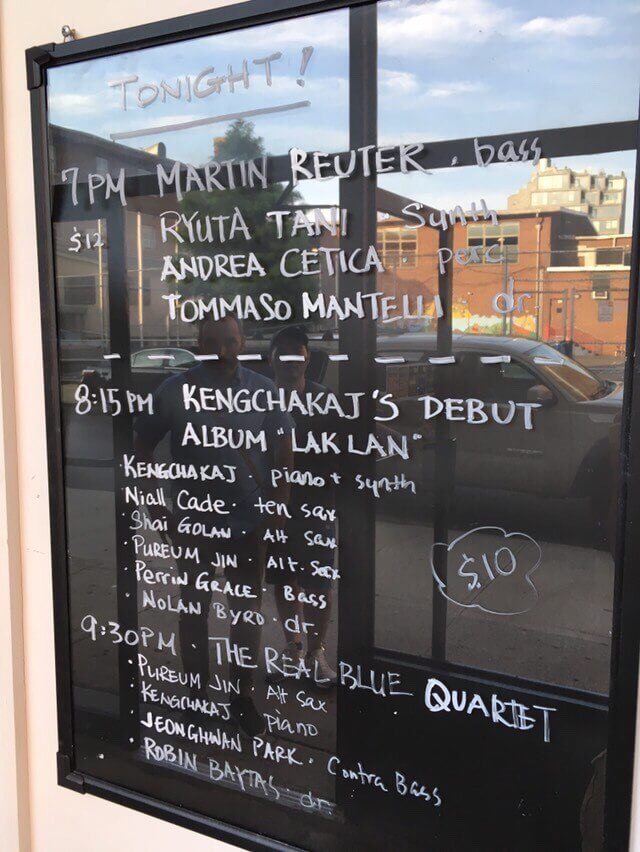 TONIGHT!
7PM MARTIN REUTER . bass
$12 RYUTA TANI . Synth
ANDREA CETICA . perc
TOMMASO MANTELLI . dr.
8:15 PM KENGCHAKAJ'S DEBUT
ALBUM "LAK LAN"
· KENGCHAKAJ · piano + synth
· Niall Cade · ten sax
· Shai GOLAN · Alt Sax
· PUREUM JIN · Alt. Sax
· Perrin GRACE · Bass
· NOLAN BYRD · dr.
$10
9:30PM · THE REAL BLUE QUARTET
· PUREUM JIN · Alt sax
· KENGCHAKAJ · piano
· JEONGHWAN PARK · Contra Bass
· ROBIN BAYTAS · dr.